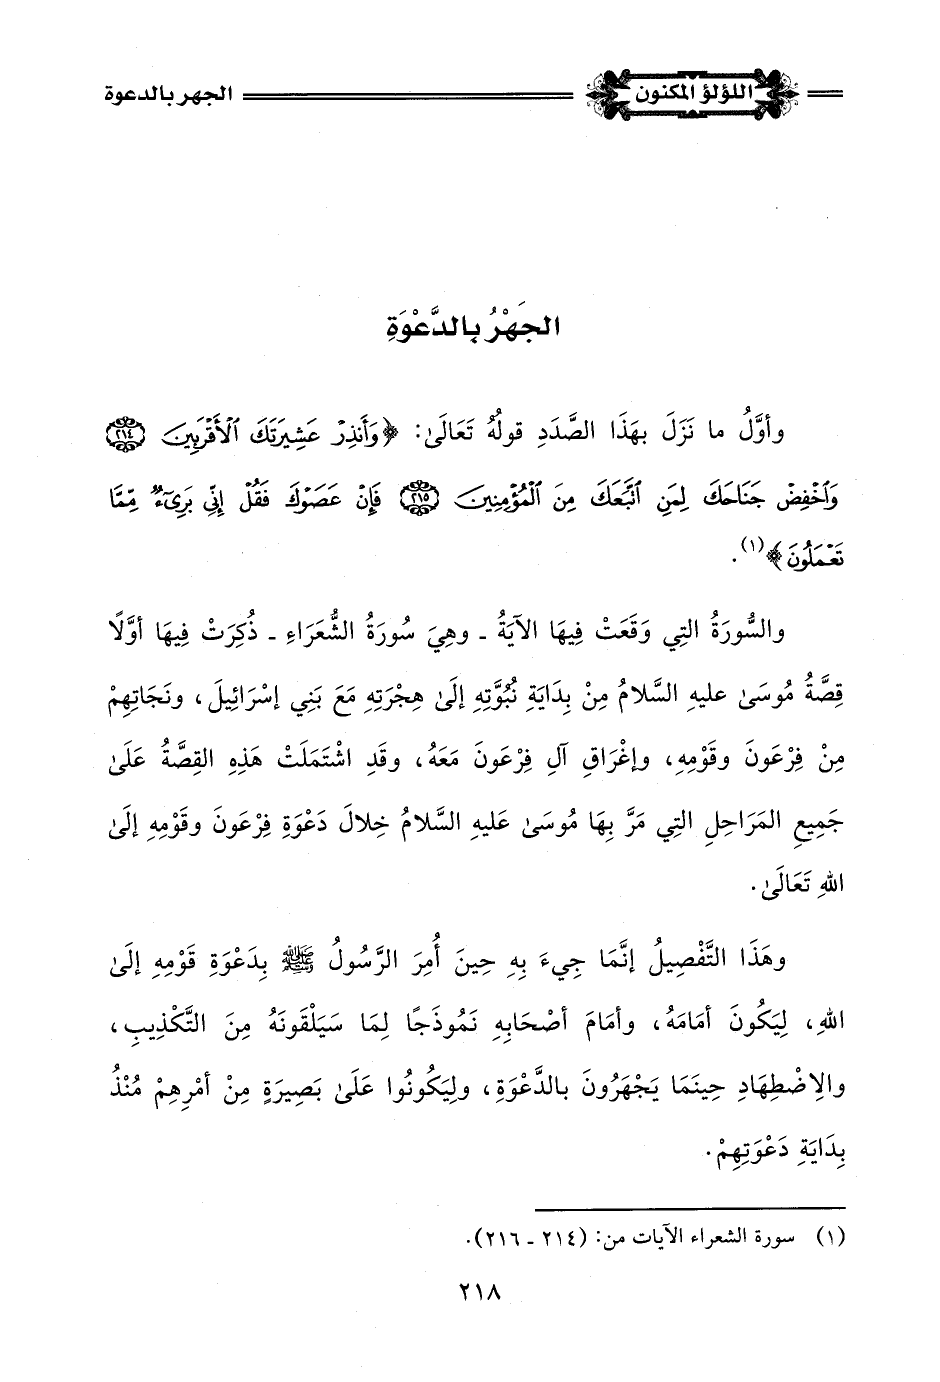 اللؤلؤ المكنون
الجهر بالدعوة
الجَهْرُ بِالدَّعْوَةِ
وأوَّلُ ما نَزَلَ بهَذَا الصَّدَدِ قولُهُ تَعَالَىٰ: ﴿وَأَنذِرْ عَشِيرَتَكَ ٱلْأَقْرَبِينَ ٢١٤
وَٱخْفِضْ جَنَاحَكَ لِمَنِ ٱتَّبَعَكَ مِنَ ٱلْمُؤْمِنِينَ ٢١٥ فَإِنْ عَصَوْكَ فَقُلْ إِنِّي بَرِيٓءٌ مِّمَّا
تَعْمَلُونَ﴾(١).
والسُّورَةُ التِي وَقَعَتْ فِيهَا الآيَةُ ـ وهِيَ سُورَةُ الشُّعَرَاءِ ـ ذُكِرَتْ فِيهَا أوَّلًا
قِصَّةُ مُوسَىٰ عليهِ السَّلامُ مِنْ بِدَايَةِ نُبُوَّتِهِ إِلَىٰ هِجْرَتِهِ مَعَ بَنِي إسْرَائِيلَ، ونَجَاتِهِمْ
مِنْ فِرْعَونَ وقَوْمِهِ، وإغْرَاقِ آلِ فِرْعَونَ مَعَهُ، وقَدِ اشْتَمَلَتْ هَذِهِ القِصَّةُ عَلَىٰ
جَمِيعِ المَرَاحِلِ التِي مَرَّ بِهَا مُوسَىٰ عَليهِ السَّلامُ خِلالَ دَعْوَةِ فِرْعَونَ وقَوْمِهِ إلَىٰ
اللهِ تَعَالَىٰ.
وهَذَا التَّفْصِيلُ إنَّمَا جِيءَ بِهِ حِينَ أُمِرَ الرَّسُولُ ﷺ بِدَعْوَةِ قَوْمِهِ إلَىٰ
اللهِ، لِيَكُونَ أمَامَهُ، وأمَامَ أصْحَابِهِ نَمُوذَجًا لِمَا سَيَلْقَونَهُ مِنَ التَّكْذِيبِ،
والِاضْطِهَادِ حِينَمَا يَجْهَرُونَ بالدَّعْوَةِ، ولِيَكُونُوا عَلَىٰ بَصِيرَةٍ مِنْ أمْرِهِمْ مُنْذُ
بِدَايَةِ دَعْوَتِهِمْ.
(١) سورة الشعراء الآيات من: (٢١٤ ـ ٢١٦).
٢١٨